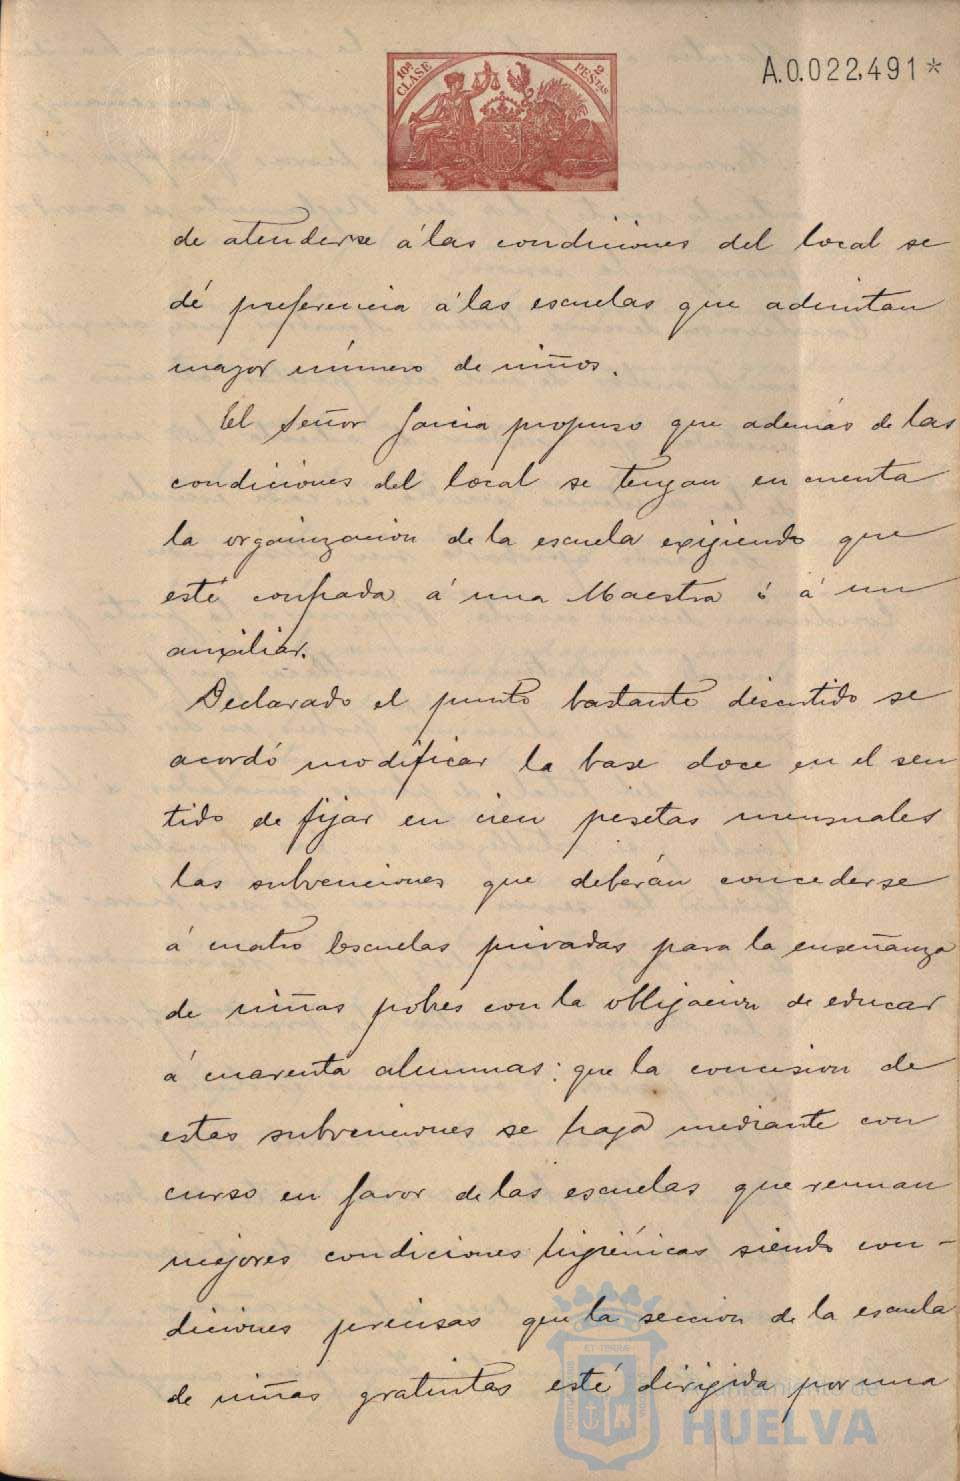 10ª CLASE 2 PESETAS
A.0.022,491*
de atenderse á las condiciones del local se
dé preferencia á las escuelas que admitan
mayor número de niños.
El Señor Garcia propuso que además de las
condiciones del local se tengan en cuenta
la organizacion de la escuela exijiendo que
esté confiada á una Maestra ó á un
auxiliar.
Declarado el punto bastante discutido se
acordó modificar la base doce en el sen
tido de fijar en cien pesetas mensuales
las subvenciones que deberán concederse
á cuatro Escuelas privadas para la enseñanza
de niñas pobres con la obligacion de educar
á cuarenta alumnas: que la concesion de
estas subvenciones se haga mediante con
curso en favor de las escuelas que reunan
mejores condiciones higiénicas siendo con-
diciones precisas que la seccion de la escuela
de niñas gratuitas esté dirigida por una
Ayuntamiento de
HUELVA